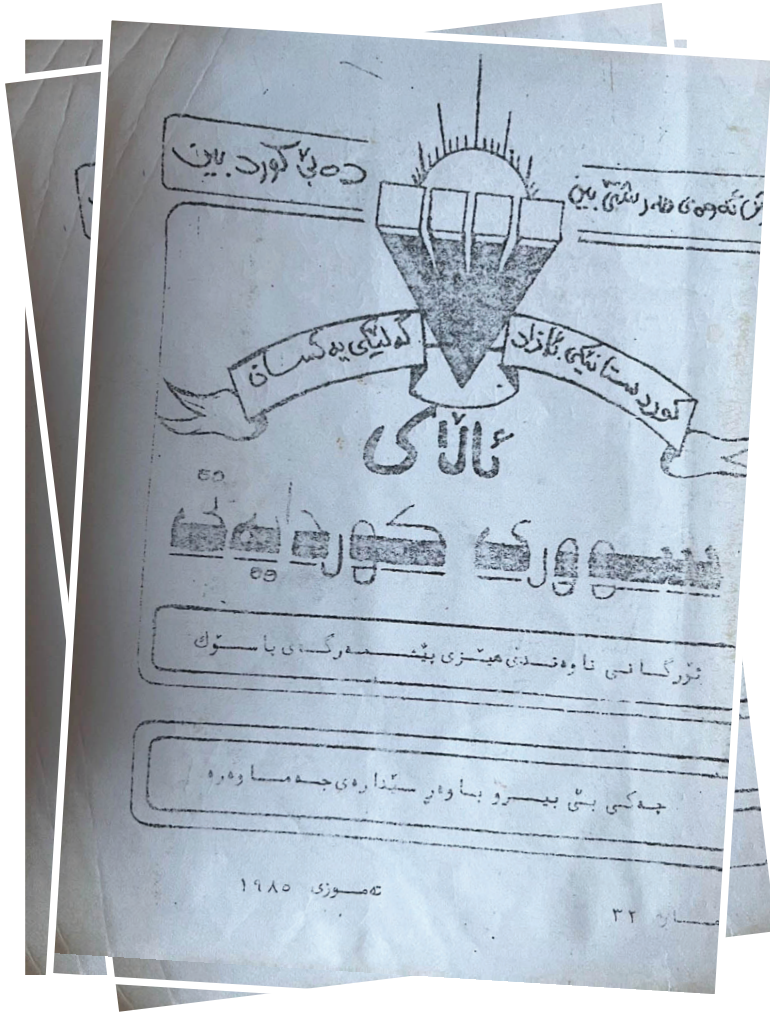 ئەوەی هەرشتێ بین دەبێ کورد بین
کوردستانێکی ئازاد گەلێکی یەکسان
ئاڵای
سووری کوردایەتی
ئۆرگانی ناوەندی هێزی پێشمەرگەی پاسۆک
چەکی بێ بیروباوەر سێدارەی جەماوەرە
٣٢ تەموزی ١٩٨٥